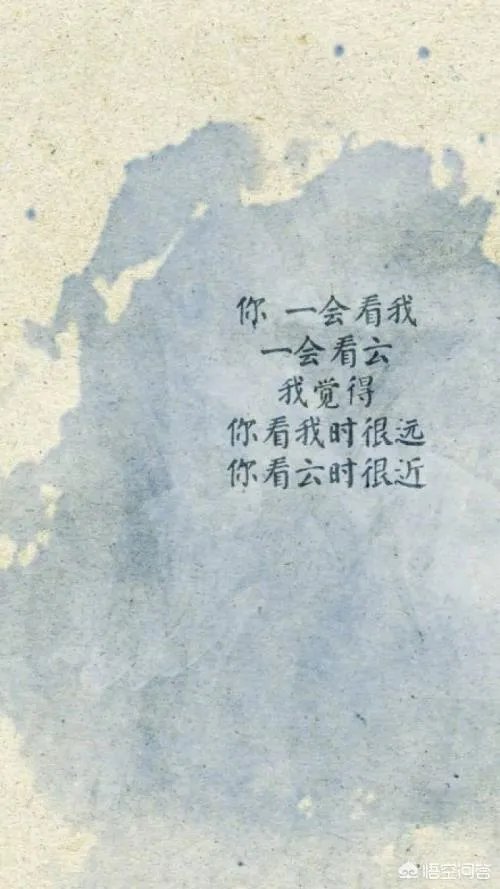 你 一会看我
一会看云
我觉得
你看我时很远
你看云时很近
悟空问答